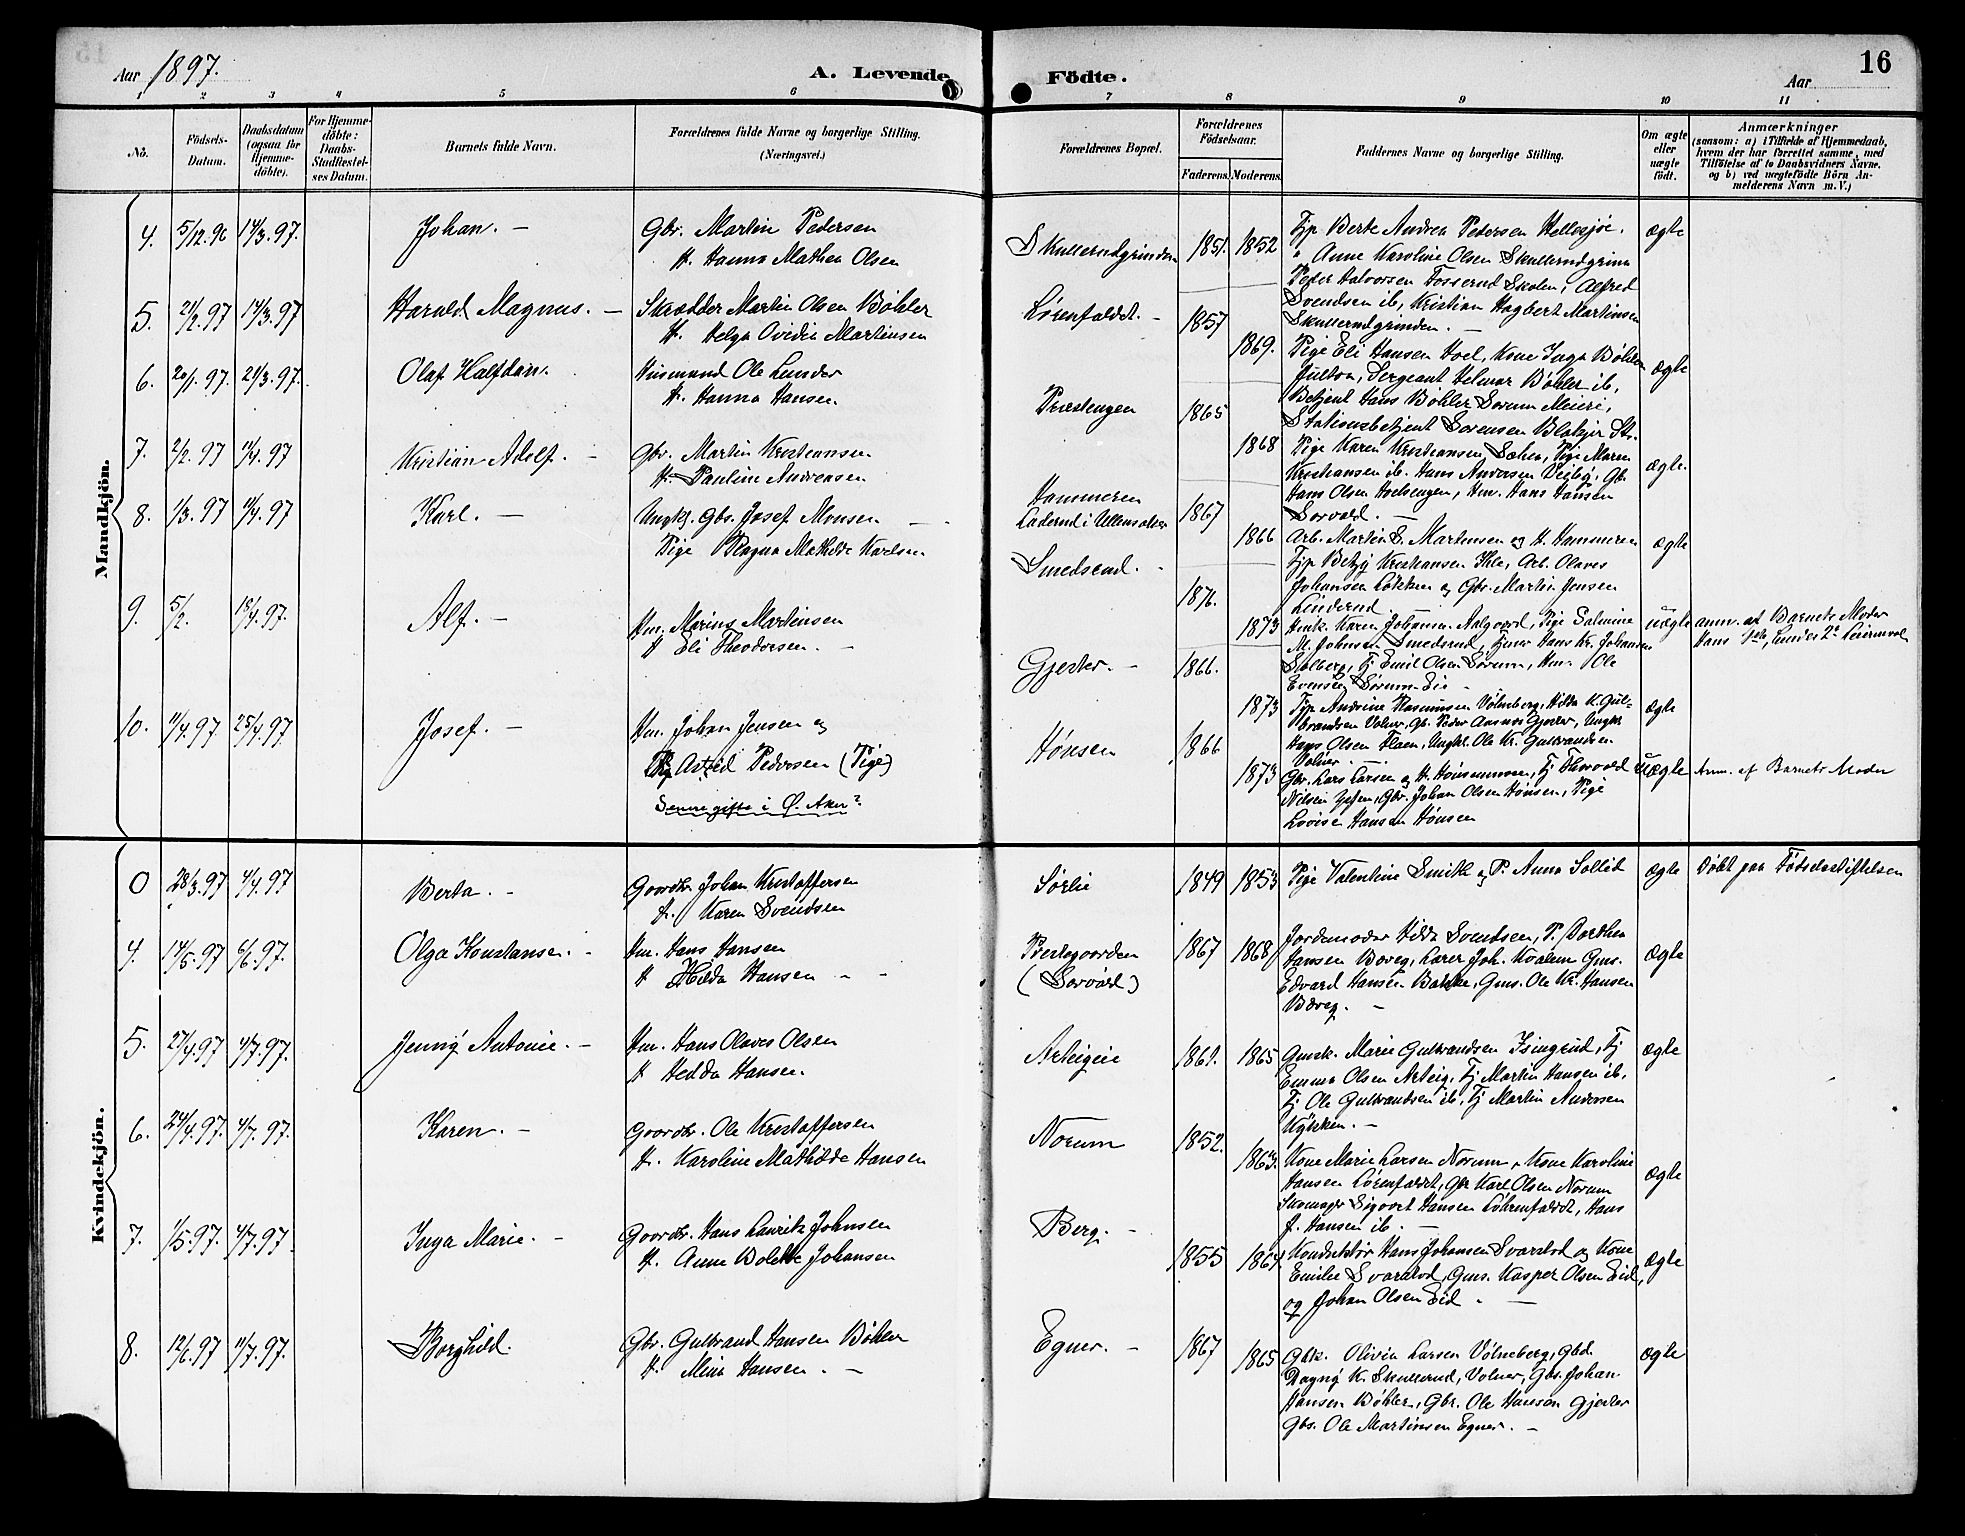 Aar 1897. A. Levende Födte. Aar 16
1 2 3 4 5 6 7 8 9 10 11
No.
Födsels-Datum.
Daabsdatum (ogsaa for Hjemmedöbte).
For Hjemmedöbte: Daabs-Stadfestelses Datum.
Barnets fulde Navn.
Forældrenes fulde Navne og borgerlige Stilling. (Næringsvei.)
Forældrenes Bopæl.
Forældrenes Födselsaar.
Faderens. Moderens.
Faddernes Navne og borgerlige Stilling.
Om ægte eller uægte födt.
Anmærkninger (saasom: a) i Tilfælde af Hjemmedaab, hvem der har forrettet samme, med Tilföielse af to Daabsvidners Navne, og b) ved uægtefödte Börn Anmelderens Navn m. V.)
Mandkjön.
4. 5/12.96 14/3.97. Johan. - Gbr. Martin Pedersen
H. Hanna Mathea Olsen
Skullerudgrinden 1851. 1852 Tjp Berte Andrea Pedersen Hellesjøe.
" Anne Karoline Olsen Skullerudgrinn
Peder Halvorsen Fosserud Skolen, Alfred
Svendsen ib, Kristian Hagbert Martinsen
Skullerudgrinden. -
ægte
5. 21/2.97 14/3.97 Harald Magnus. - Skrædder Martin Olsen Bøhler
H. Helga Ovidie Martinsen
Lørenfaldet. - 1857 1869. Pige Eli Hansen Hoel, Kone Inga Bøhler
Julton, Sergeant Helmer Bøhler ib,
Betjent Hans Bøhler Sorum Meieri,
Stationsbetjent Sorensen Blakjer St.
ægte
6. 20/1.97. 21/3.97. Olaf Halfdan. Husmand Ole Lunder
H. Hanna Hansen.
Præstengen 1865 1868 Pige Karen Kristiansen Pige Maren
Kristiansen ib. Hans Andersen Gb.
Hans Olsen Hoelsengen, Hm. Hans Hansen
Sorvald. -
ægte.
7. 2/2.97 11/4.97 Kristian Adolf. - Gbr. Martin Kristiansen
H. Pauline Andreasen
Hammeren
Laderud i Ullensaker 1867 1866 Arb. Martin S. Martinsen og H. Hammeren
Tjp Betzy Kristiansen Ihle, Arb. Olaves
Johansen Løkken og Gbr. Martin Jensen
Linderud
ægte
8. 1/3.97 11/4.97 Karl. - Ungk. Gbs. Josef Monsen -
Pige Ragna Mathilde Karlsen
Smedsrud. - 1876. 1873 Hmk. Karen Johansen Aalgaard, Pige Salmine
M. Johnsen Smedsrud, Hans Kr. Johansen
Solberg, Tj Emil Olsen Sørum, Hm. Ole
Evensen Sørum Eie -
uægte anm. af Barnets Moder
Hans
9. 5/2. 18/4.97. Alf. - Hm. Marius Martinsen
H Eli Theodorsen. -
Gjester. - 1866. 1873 Tjp Andrine Rasmussen Vølneberg, Hilda K. Gulbrandsen
Volner, Gb. Peder Aasnes Gjester, Ungk.
Hans Olsen Flaen, Ungkl. Ole Kr. Gulbrandsen
Volner. -
ægte
10. 11/4.97 25/4.97 Josef. - Hm. Johan Jensen og
Astrid Pedersen (Pige)
Senere gifte i Ø. Aker?
Hønsen 1866 1873 Gbr. Lars Larsen og H. Hønsen Tj Thorvald
Nilsen Gbr. Johan Olsen Hønsen, Pige
Lovise Hansen Hønsen
uægte Anm. af Barnets Moder
Kvindekjön.
0 28/3.97 4/4.97 Berta. - Gaardbr. Johan Kristoffersen
H. Karen Svendsen
Sørlie 1849 1853 Pige Valentine Smith og P. Anna Sollid ægte Døbt paa Fødselsstiftelsen
4. 14/5.97 6/6.97. Olga Konstanse. - Hm. Hans Hansen
H Hilda Hansen - -
Prestegaarden
(Sorvald) 1867 1868 Jordemoder Hilda Svendsen, P. Dorthea
Hansen Børeg, Lærer Joh. Kvalem Gms.
Edvard Hansen Bakke, Gms. Ole Kr. Hansen
Børeg. -
ægte
5. 27/4.97 4/7.97. Jenny Antonie. - Hm. Hans Olaves Olsen
H Hedda Hansen.
Arteigeie 1861. 1865 Gmsk. Marie Gulbrandsen Isingrud, Tj
Emma Olsen Arteig, Tj Martin Hansen ib.
Tj Ole Gulbrandsen ib, Tj Martin Andersen
ægte
6. 24/4.97. 4/7.97. Karen. - Gaardbr. Ole Kristoffersen
H. Karoline Mathilde Hansen
Norum 1852. 1863. Kone Marie Larsen Norum, Kone Karoline
Hansen Lørenfaldet, Gbr Karl Olsen Norum
Skomager Sigvart Hansen Løhrenfaldet, Hans
J. Hansen ib. -
ægte
7. 1/5.97. 4/7.97 Inga Marie. - Gaardbr. Hans Laurits Johnsen
H. Anne Bolette Johansen
Berg. - 1855 1864. Konduktør Hans Johansen Svarstad og Kone
Emilie Svarstad, Gms. Kasper Olsen Eid,
og Johan Olsen Eid. -
ægte
8. 12/6.97 11/7.97. Borghild. Gbr. Gulbrand Hansen Bøhler
H. Mina Hansen. -
Egner. - 1867 1865 Gbk. Olivia Larsen Vølneberg, Gbd.
Dagny K. Skullerud, Volner, Gbs. Johan
Hansen Bøhler, Gbr. Ole Hansen Gjester
Gbs. Ole Martinsen Egner. -
ægte